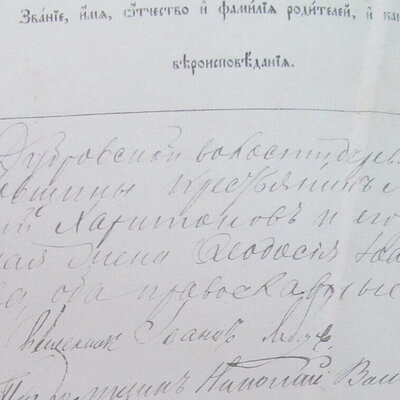 Зва́нїе, и҆́мѧ, ѻ҆́тчество и҆ фами́лїѧ роди́телей, и҆ как
вѣроисповѣ́данїѧ.
Дубровской волости, дерев
вщины крестьянинъ
Харитоновъ и его
ная жена Ѳеодосія Іоа
ва, оба православные
Священник Іоаннъ
Николай